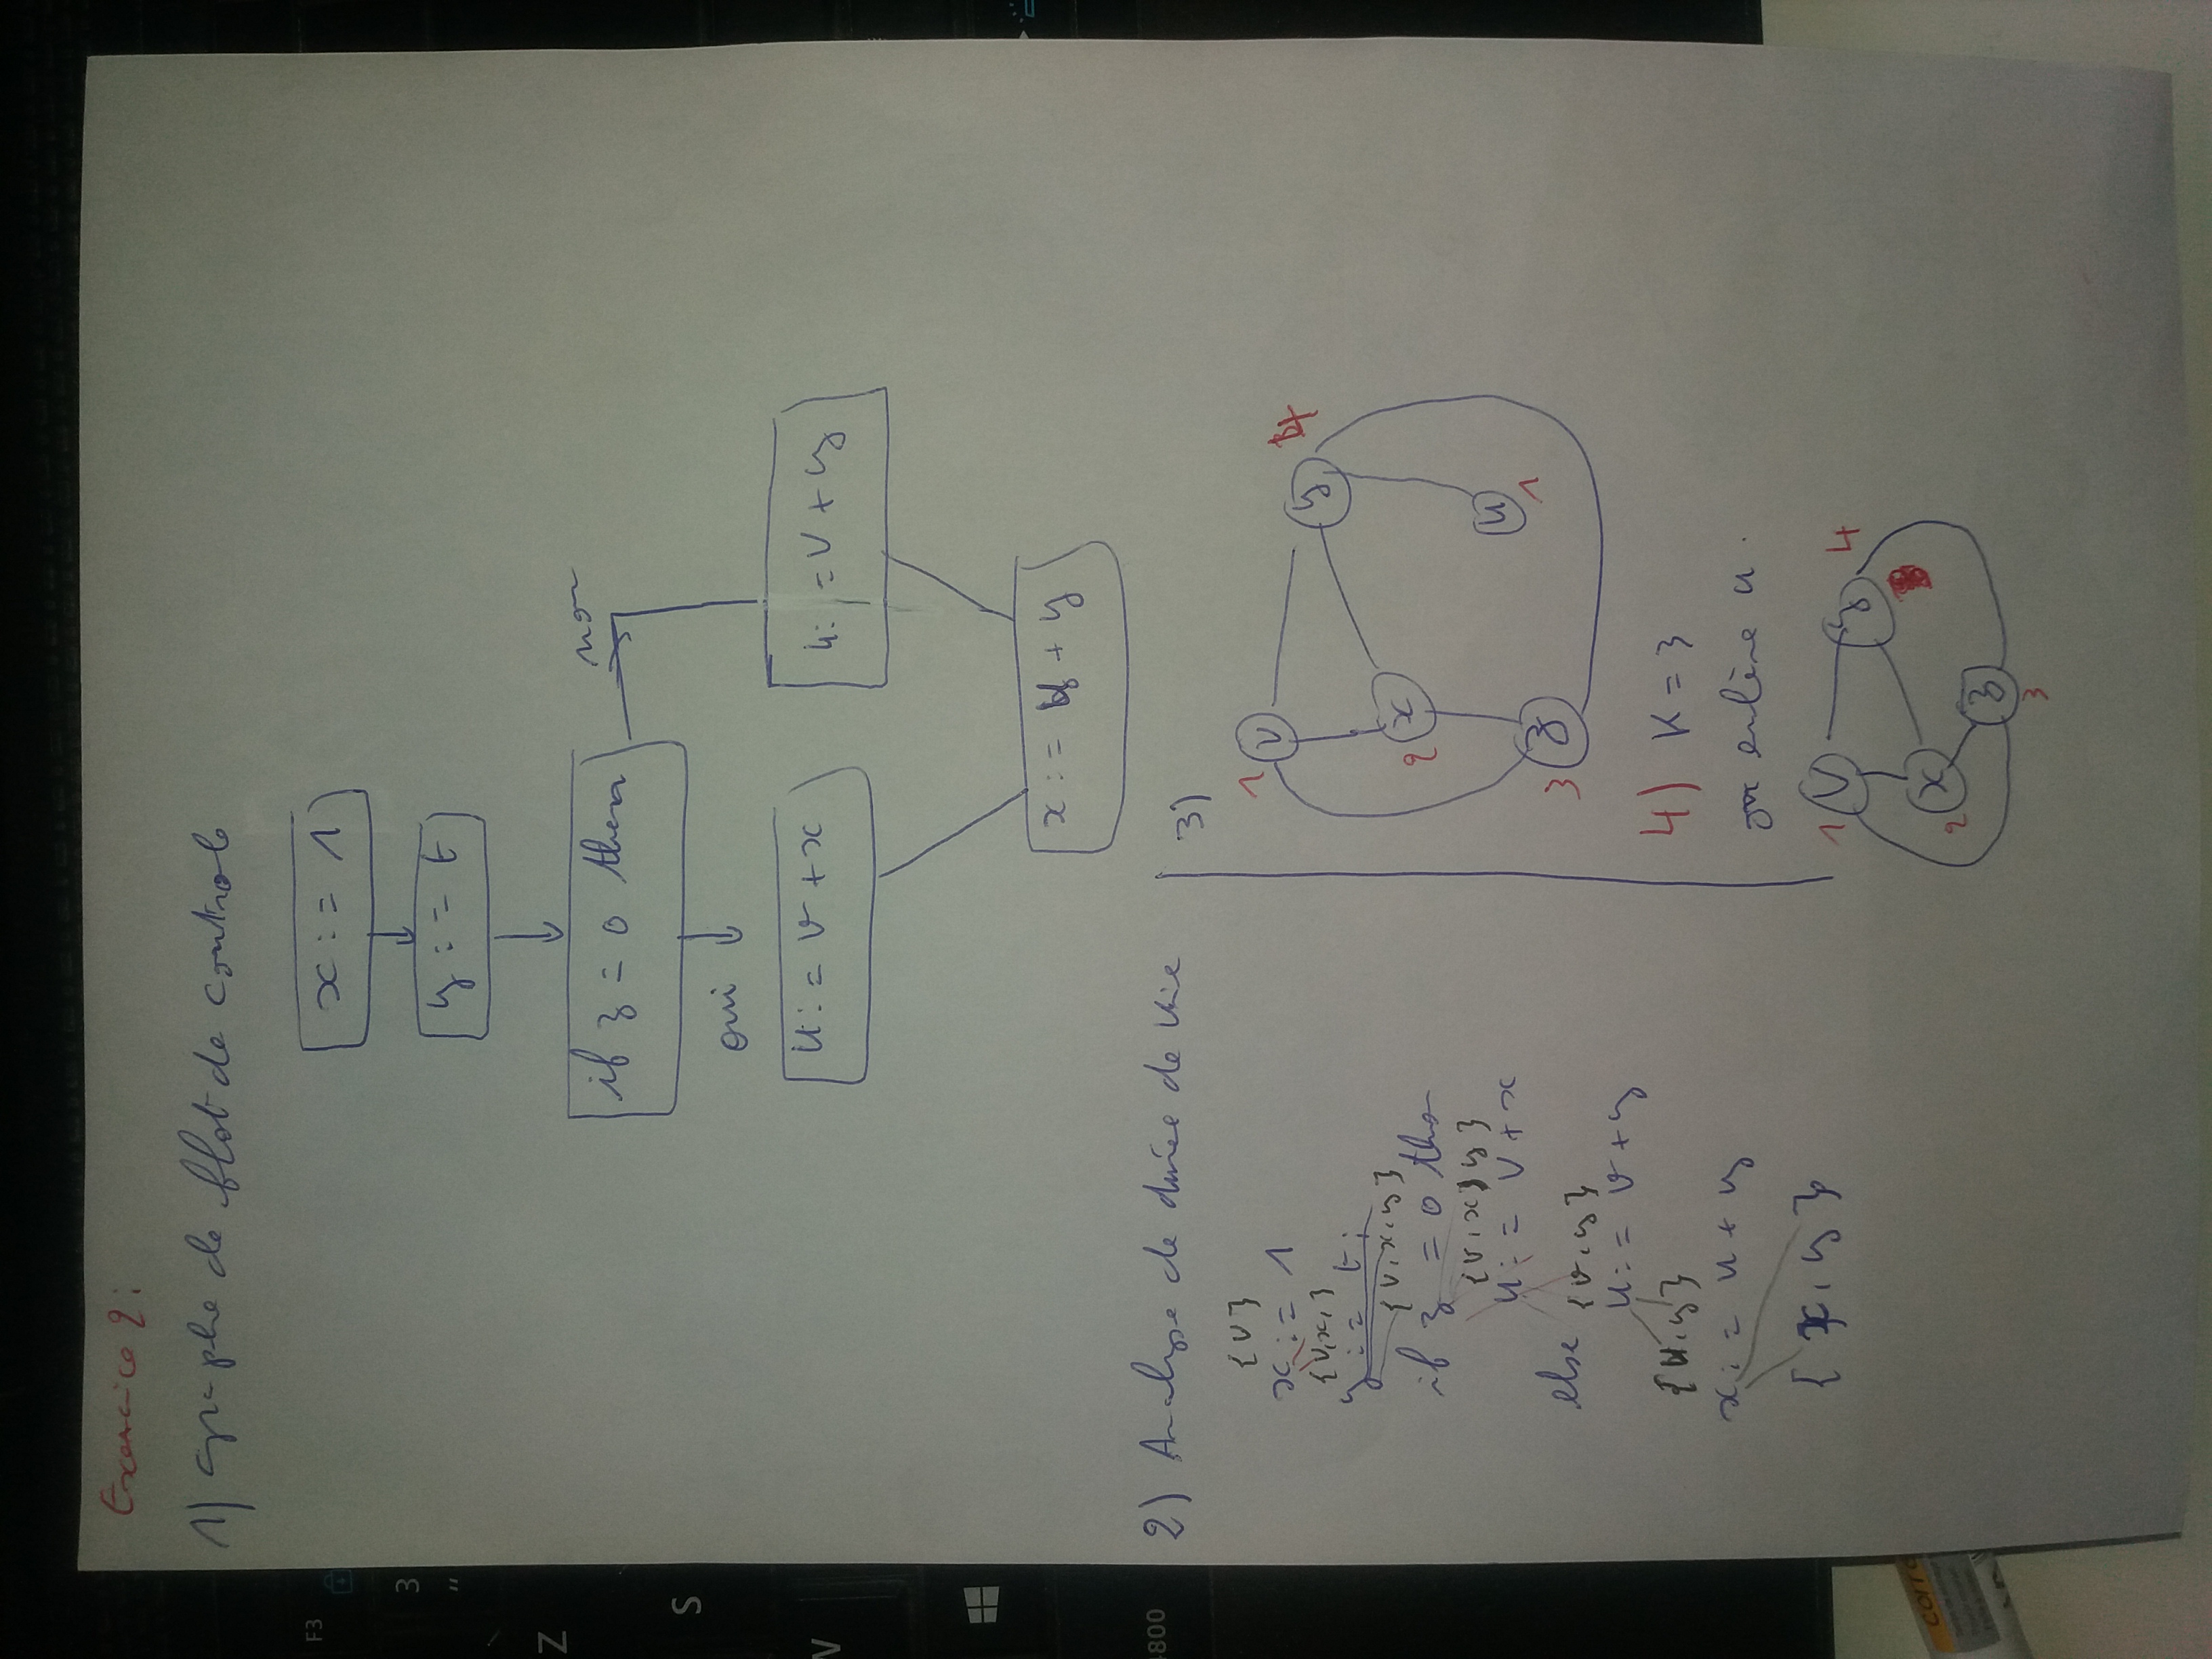 Exercice 2:
1) Graphe de flot de controle
x := 1
y := t
if z = 0 then
non
oui
u := v + x
u := v + y
x := u + y
2) Analyse de durée de vie
{v}
x := 1
{v,x,}
y := t;
{v,x,y}
if z = 0 then
{v,x,y}
u := v + x
else {v,y}
u := v + y
{u,y}
x := u + y
{x,y}
3)
1 v
y
x
2
u
1
z
3
4) K = 3
on enlève u.
1 v
y 4
x
2
z
3
F3
3
"
Z
S
W
4800
corre